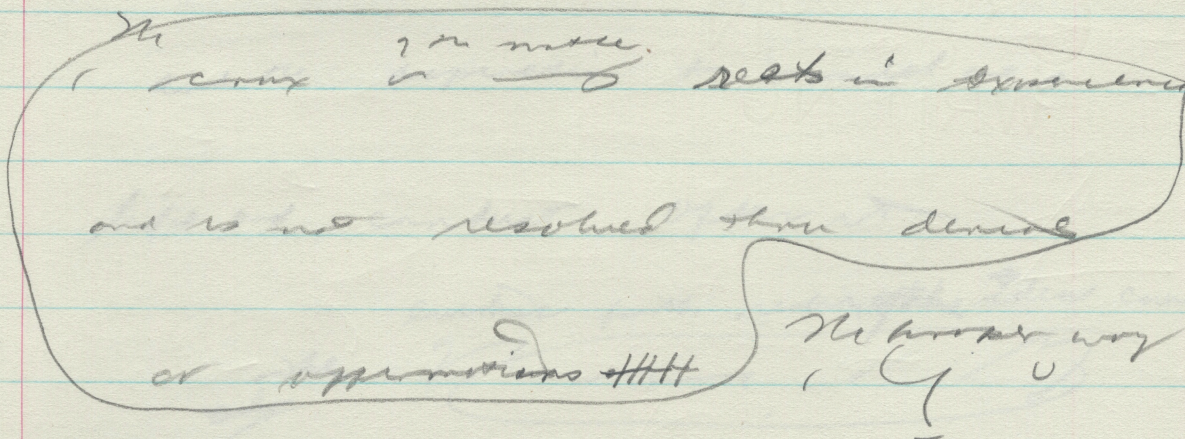 The you notice.
crux is rests in experience
and is not resolved thru denial
or affirmations
The proper way